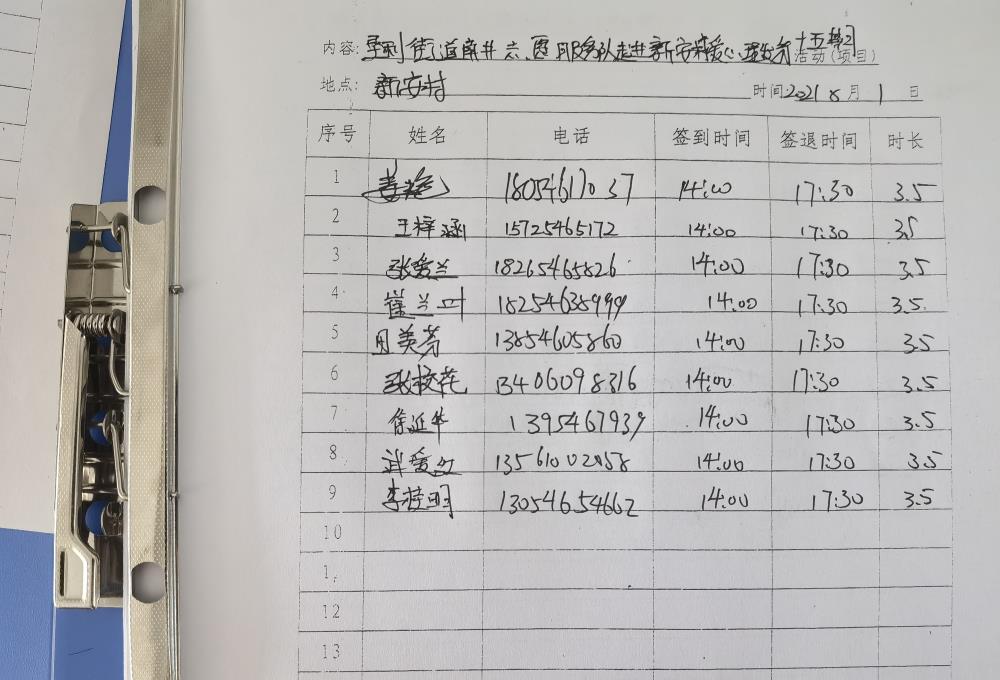 内容: 垦利街道 走进新安 爱心 活动(项目)
地点: 新安村 时间2021 8月 1 日
序号 姓名 电话 签到时间 签退时间 时长
1 姜艳 18054617037 14:00 17:30 3.5
2 王梓涵 15725465172 14:00 17:30 3.5
3 张爱兰 18265465826 14:00 17:30 3.5
4 崔兰叶 18254635999 14:00 17:30 3.5
5 周美芳 13854605860 14:00 17:30 3.5
6 张 花 13406098316 14:00 17:30 3.5
7 徐延华 1395467939 14:00 17:30 3.5
8 爱 14:00 17:30 3.5
9 李桂明 13054654662 14:00 17:30 3.5
10
1
12
13